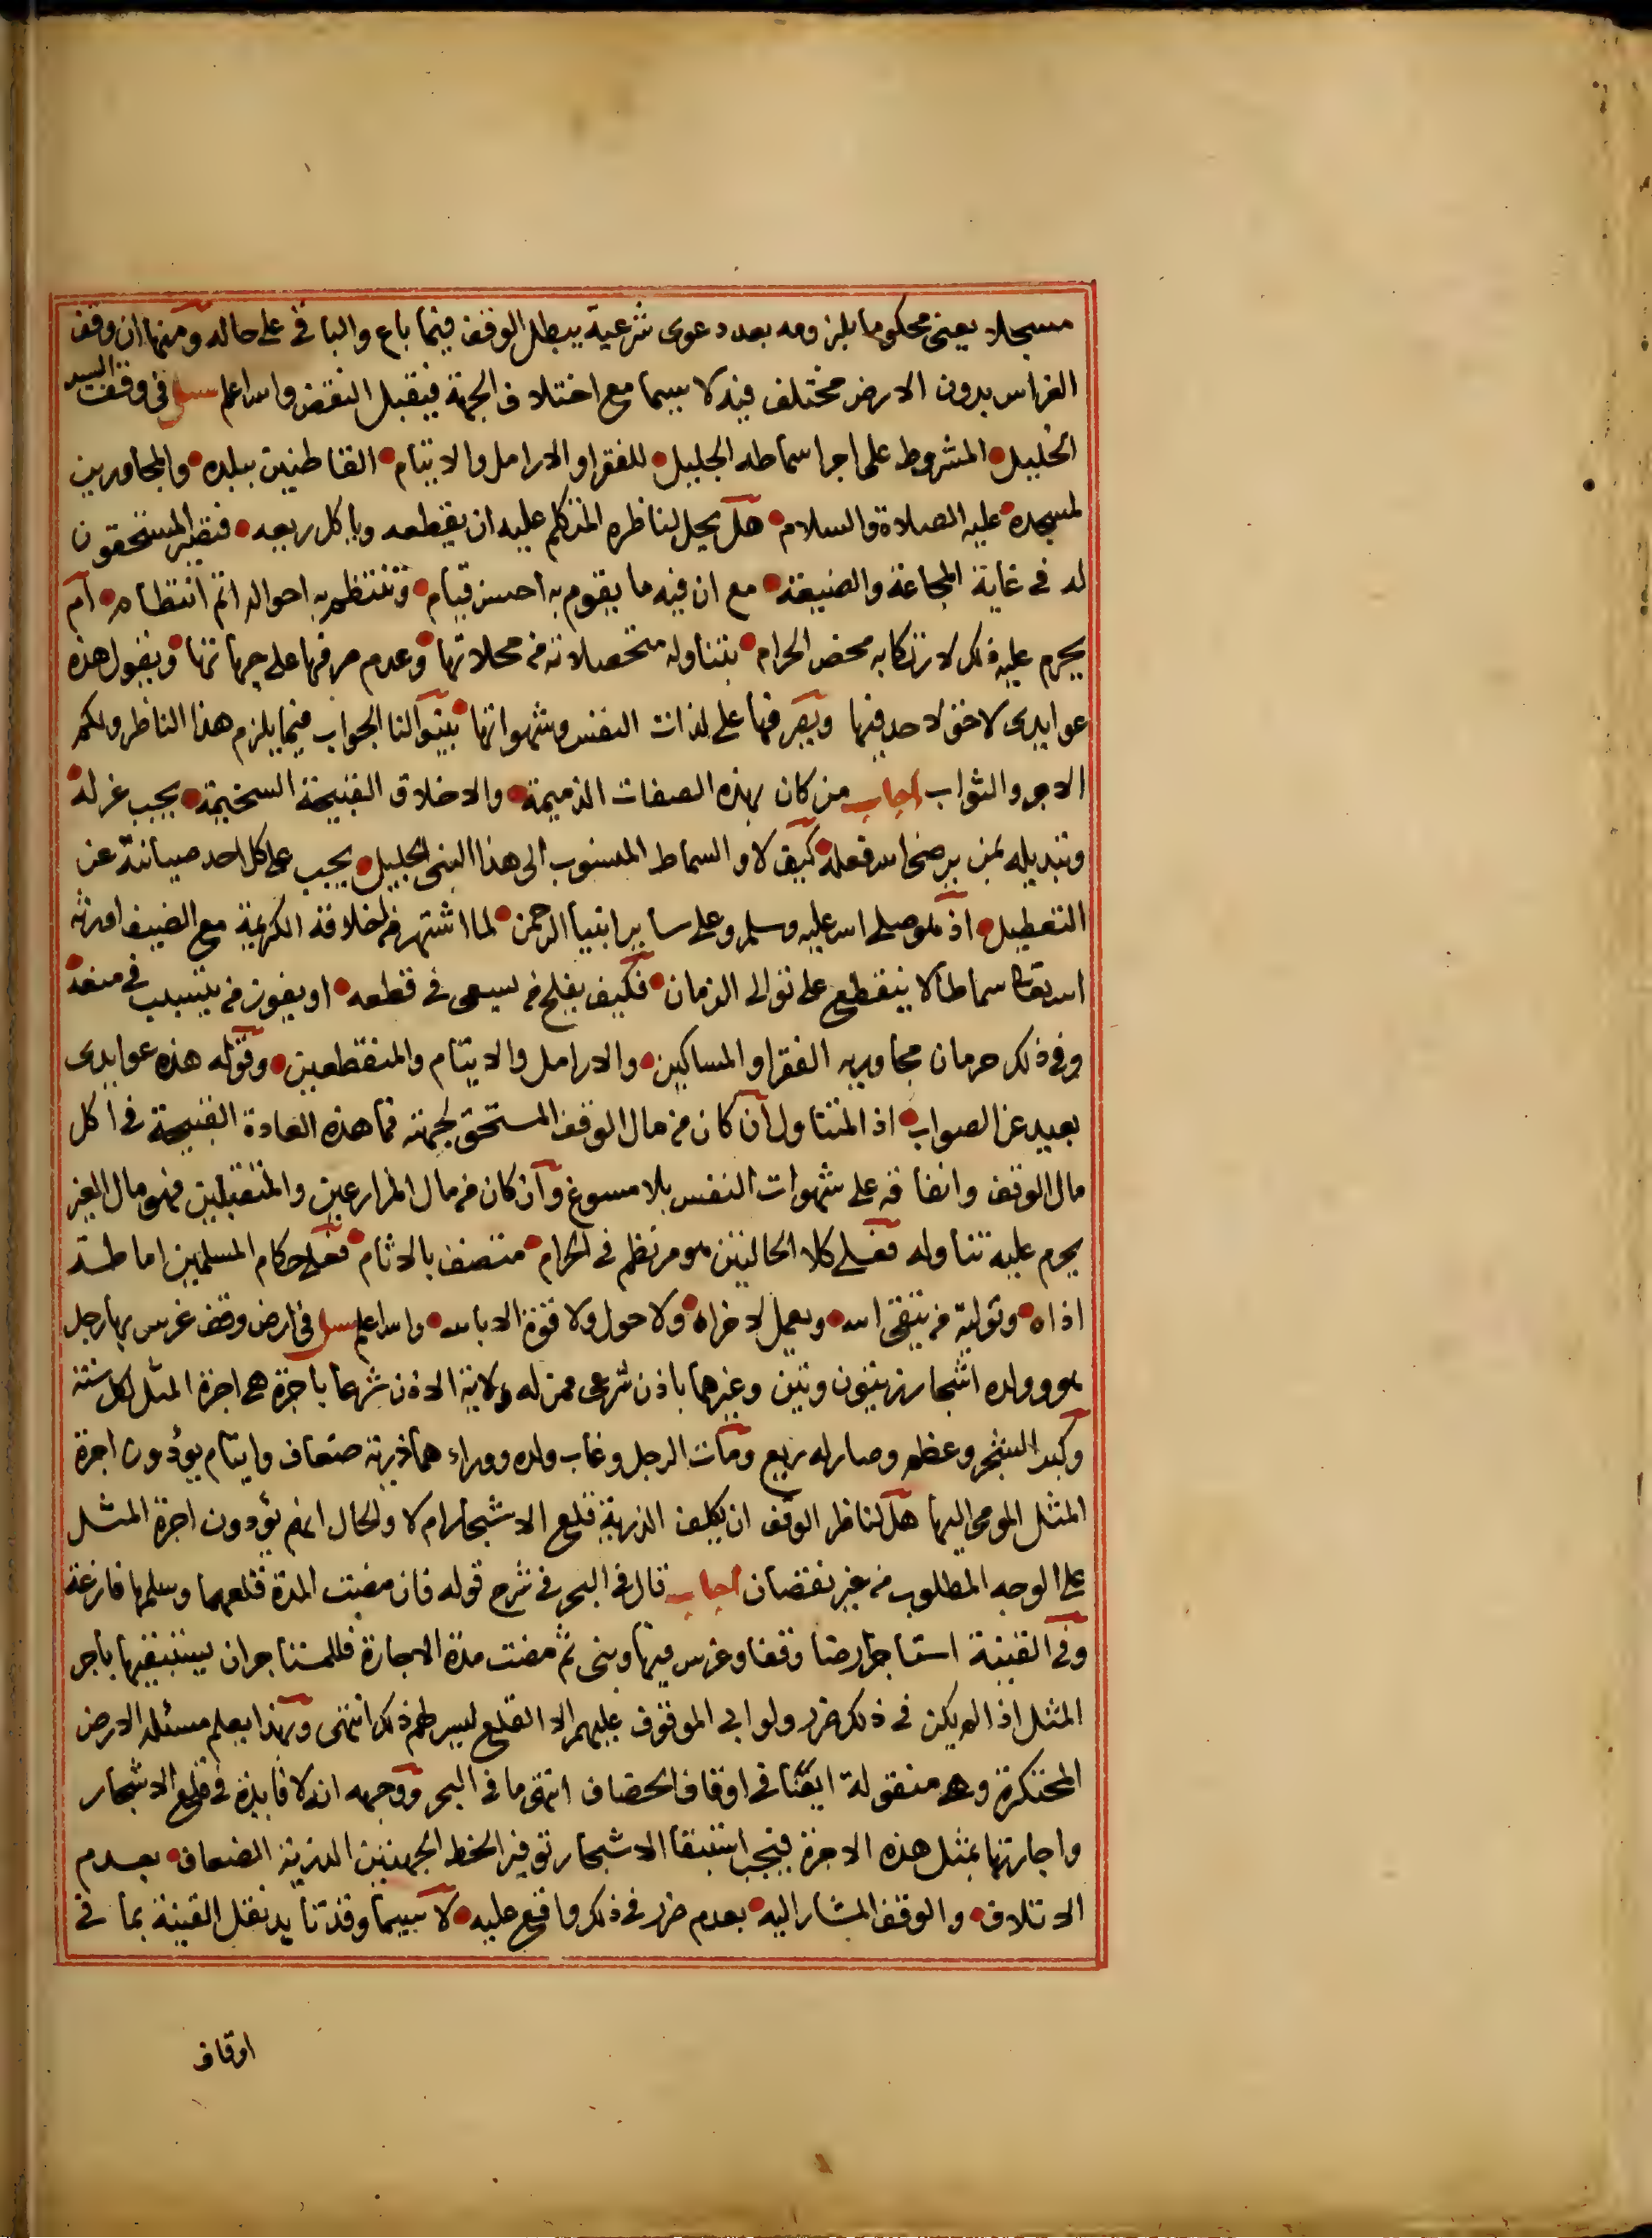 مسجلا يعني محكوما بلزومه بعد دعوى شرعية يبطل الوقف فيما باع والباقي على حاله ومنها ان وقف
الغراس بدون الارض مختلف فيه لا سيما مع اختلاف الجهة فيقبل النقض والله اعلم سئل في وقف السيد
الخليل المشروط على اجرا سماطه الجليل للفقرا والارامل والايتام القاطنين ببلده والمجاورين
لمسجده عليه الصلاة والسلام هل يحل لناظره المتكلم عليه ان يقطعه وياكل ريعه فتصير المستحقون
له في غاية المجاعة والضيقة مع ان فيه ما يقوم به احسن قيام وتنتظم به احواله اتم انتظام ام
يحرم عليه ذلك لارتكابه محض الحرام بتناوله متحصلاته من محلاتها وعدم صرفها على جهاتها ويقول هذه
عوايدى لا حق لاحد فيها ويصرفها على لذات النفس وشهواتها بينوا لنا الجواب فيما يلزم هذا الناظر ولكم
الاجر والثواب اجاب من كان بهذه الصفات الذميمة والاخلاق القبيحة السخيمة يجب عزله
وتبديله بمن يرضى الله فعله كيف لا والسماط المنسوب الى هذا النبى الجليل يجب على كل احد صيانته عن
التعطيل اذ هو صلى الله عليه وسلم وعلى ساير انبيا الرحمن لما اشتهر من اخلاقه الكريمة مع الضيف اورثه
الله تعالى سماطا لا ينقطع على توالى الزمان فكيف يفلح من يسعى في قطعه او يفوز من يتسبب في منعه
وفي ذلك حرمان مجاوريه الفقرا والمساكين والارامل والايتام والمنقطعين وقوله هذه عوايدى
بعيد عن الصواب اذ المتناول ان كان من مال الوقف المستحق لجهته فما هذه العادة القبيحة في اكل
مال الوقف وانفاقه على شهوات النفس بلا مسوغ وان كان من مال المزارعين والمتقبلين فهو مال الغير
يحرم عليه تناوله فعلى كلا الحالتين هو مرتطم في الحرام متصف بالاثام فعلى حكام المسلمين اماطة
اذاه وتولية من يتقى الله ويعمل لاخراه ولا حول ولا قوة الا بالله والله اعلم سئل في ارض وقف غرس بها رجل
هو وولده اشجار زيتون وتين وغيرهما باذن شرعى ممن له ولاية الاذن شرعا باجرة هى اجرة المثل لكل سنة
وكبر الشجر وعظم وصار له ريع ومات الرجل وغاب ولده ووراءهما ذرية ضعاف وايتام يؤدون اجرة
المثل المومى اليها هل لناظر الوقف ان يكلف الذرية قلع الاشجار ام لا والحال انهم يؤدون اجرة المثل
على الوجه المطلوب من غير نقصان اجاب قال في البحر في شرح قوله فان مضت المدة قلعهما وسلمها فارغة
وفي القنية استاجر ارضا وقفا وغرس فيها وبنى ثم مضت مدة الاجارة فللمستاجر ان يستبقيها باجر
المثل اذا لم يكن في ذلك ضرر ولو ابى الموقوف عليهم الا القلع ليس لهم ذلك انتهى وبهذا يعلم مسئلة الارض
المحتكرة وهى منقولة ايضا في اوقاف الخصاف انتهى ما في البحر ووجهه انه لا فايدة في قلع الاشجار
واجارتها بمثل هذه الاجرة فيجب استبقا الاشجار توفيرا لحظ الجهتين الذرية الضعاف بعدم
الاتلاف والوقف المشار اليه بعدم ضرر في ذلك واقع عليه لا سيما وقد تايد نقل القنية بما في
اوقاف